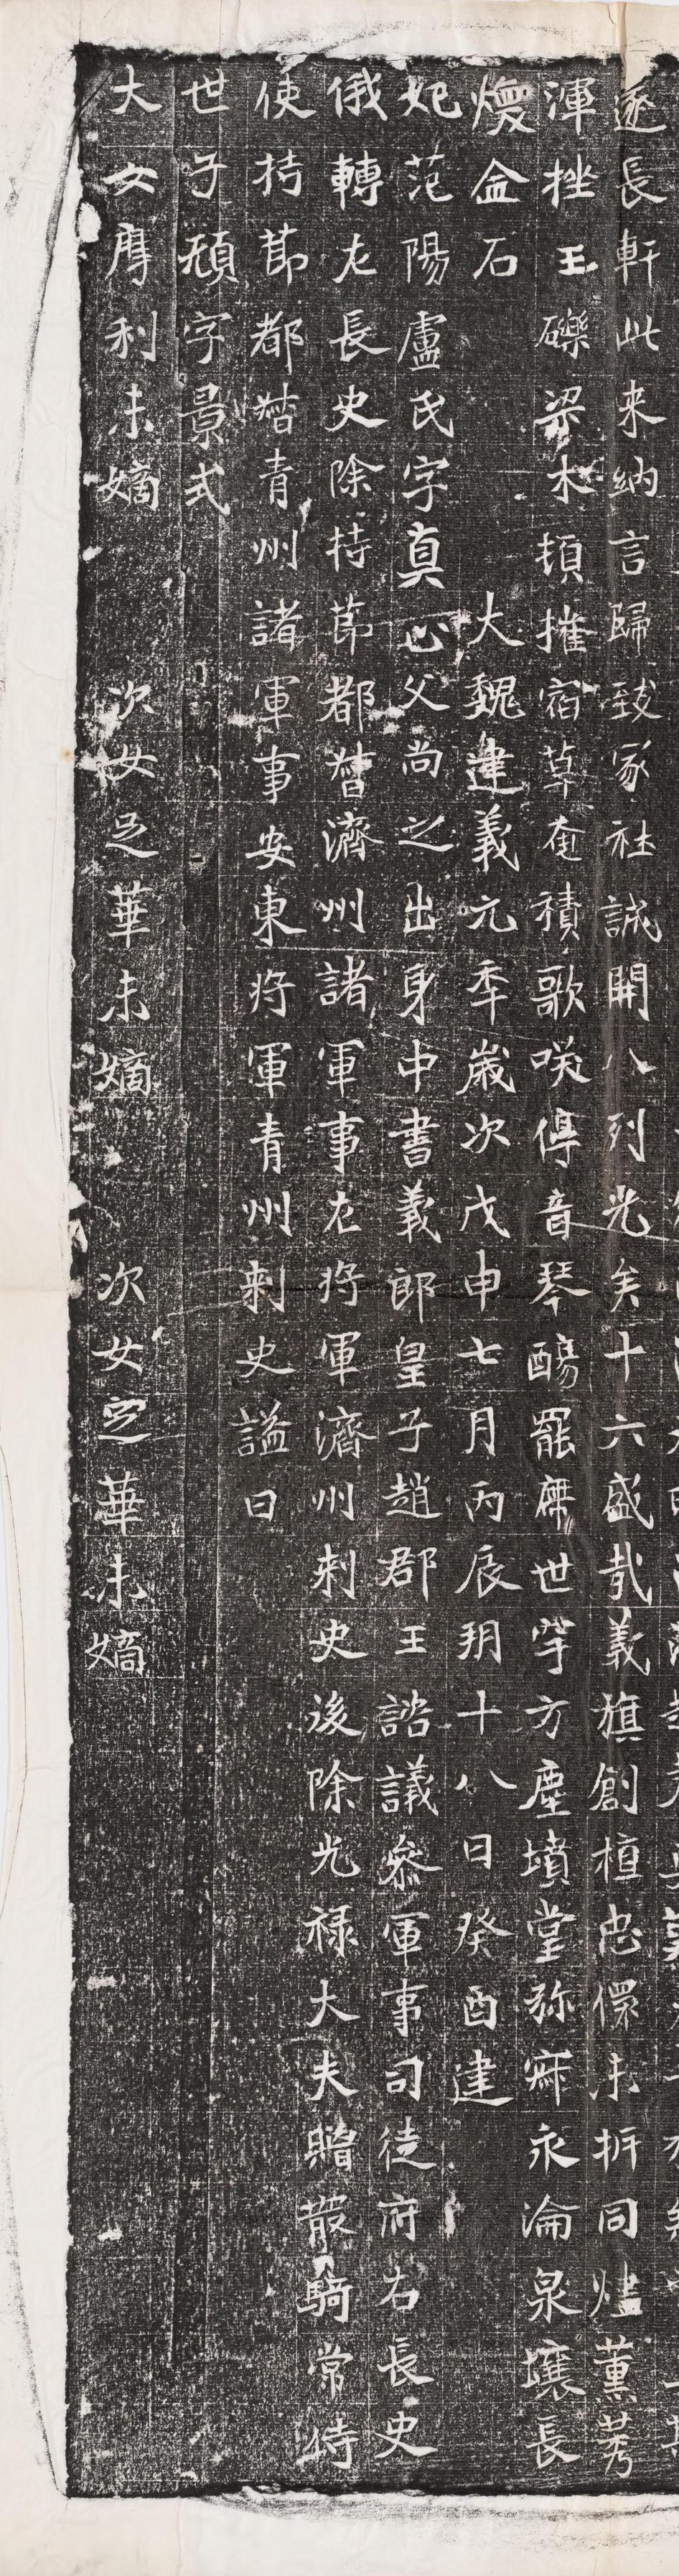 逐長軒此来納言歸致冢社誠開八列光矣十六盛哉義旗創植忠傑未折同燼薰蒡
渾挫玉礫梁木頓摧宿草奄積歌咲停音琴觴罷席世罕方塵墳堂弥寂永淪泉壤長
煥金石 大魏建義元年歲次戊申七月丙辰朔十八日癸酉建
妃范陽盧氏字真心父尚之出身中書義郎皇子趙郡王諮議參軍事司徒府右長史
俄轉左長史除持節都督濟州諸軍事左將軍濟州刺史後除光禄大夫贈散騎常侍
使持節都督青州諸軍事安東將軍青州刺史謚曰
世子頑字景式
大女摩利未嫡 次女足華未嫡 次女定華未嫡